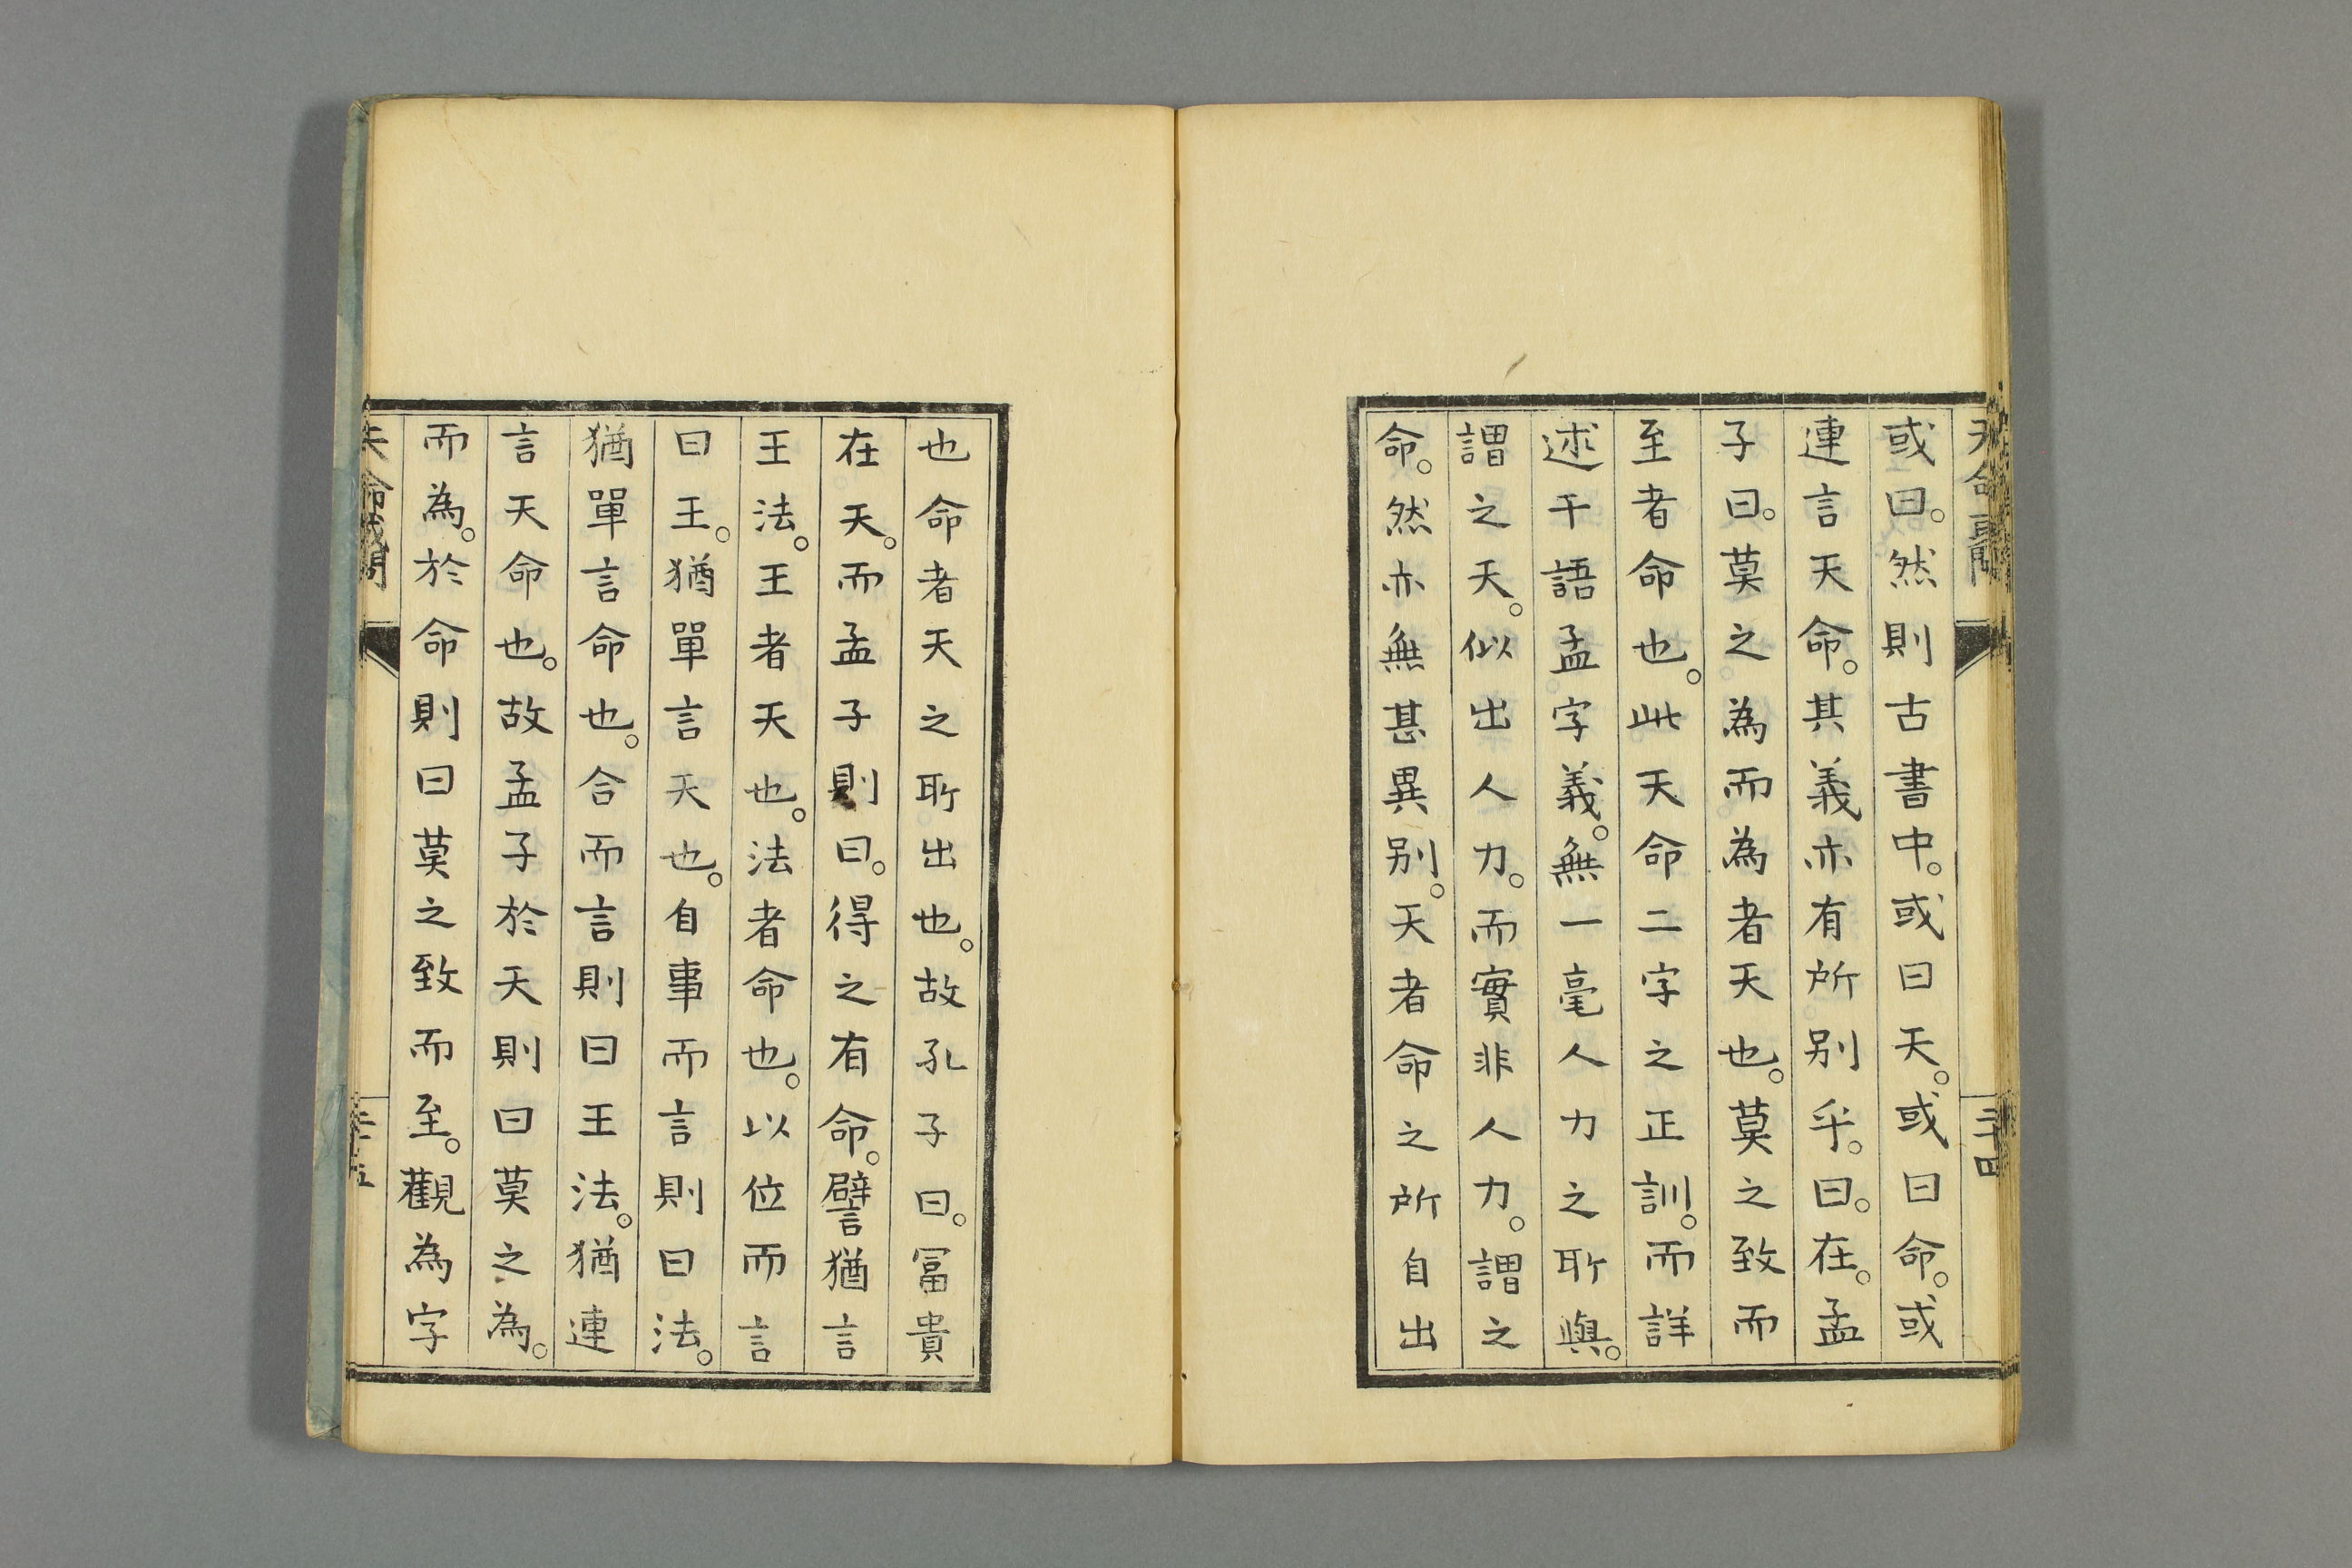 或曰。然則古書中。或曰天。或曰命。或
連言天命。其義亦有所別乎。曰。在。孟
子曰。莫之為而為者天也。莫之致而
至者命也。此天命二字之正訓。而詳
述于語孟字義。無一毫人力之所與。
謂之天。似出人力。而實非人力。謂之
命。然亦無甚異別。天者命之所自出
也命者天之所出也。故孔子曰。冨貴
在天。而孟子則曰。得之有命。譬猶言
王法。王者天也。法者命也。以位而言
曰王。猶單言天也。自事而言則曰法。
猶單言命也。合而言則曰王法。猶連
言天命也。故孟子於天則曰莫之為。
而為。於命則曰莫之致而至。觀為字